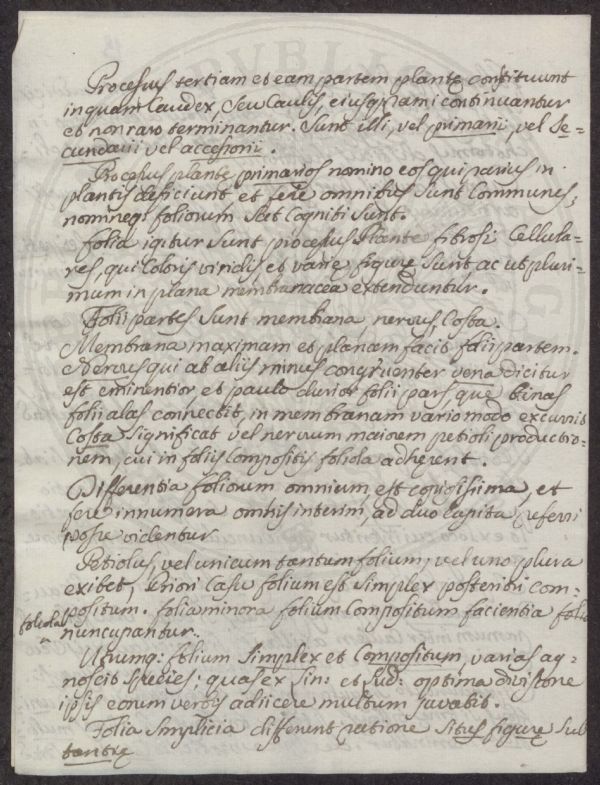 Processus tertiam et eam partem plantę constituunt
in quam Caudex, Seu Caulis, eiusq; rami continuantur
et non raro terminantur. Sunt illi, vel primarii, vel Se=
cundarii vel accessorii.
Processus plantę primarios nomino eos qui rarius in
plantis deficiunt et ferè omnibus Sunt Communes,
nomineq; foliorum Sat Cogniti Sunt.
Folia igitur Sunt processus Plantę fibrosi Cellula-
res, qui Coloris viridis et varię figurę Sunt ac ut pluri-
mum in plana membranacea extenduntur.
Folii partes Sunt membrana, nervus, Costa.
Membrana maximam et planam facit folii partem.
Nervus qui ab aliis minus congruenter vena dicitur
est eminentior, et paulo durior folii pars, quę binas
folii alas connectit, in membranam vario modo excurrit
Costa Significat vel nervum maiorem petioli productio-
nem, cui in foliis Compositis foliola adhęrent.
Differentia foliorum omnium est copiosissima, et
ferè innumera omnis interim, ad duo Capita referri
posse videntur.
Petiolus, vel unicum tantum folium, vel uno plura
exibet, Priori Casu folium est Simplex posteriori com-
positum. folia minora folium Compositum facientia folio
foliola
nuncupantur.
Utrumq: folium Simplex et Compositum, varias ag-
noscit Species; quas ex Lin: et Lud: optima divisione
ipsis eorum verbis adiicere multum juvabit.
Folia Simplicia differunt ratione Situs figurę Sub
tantię